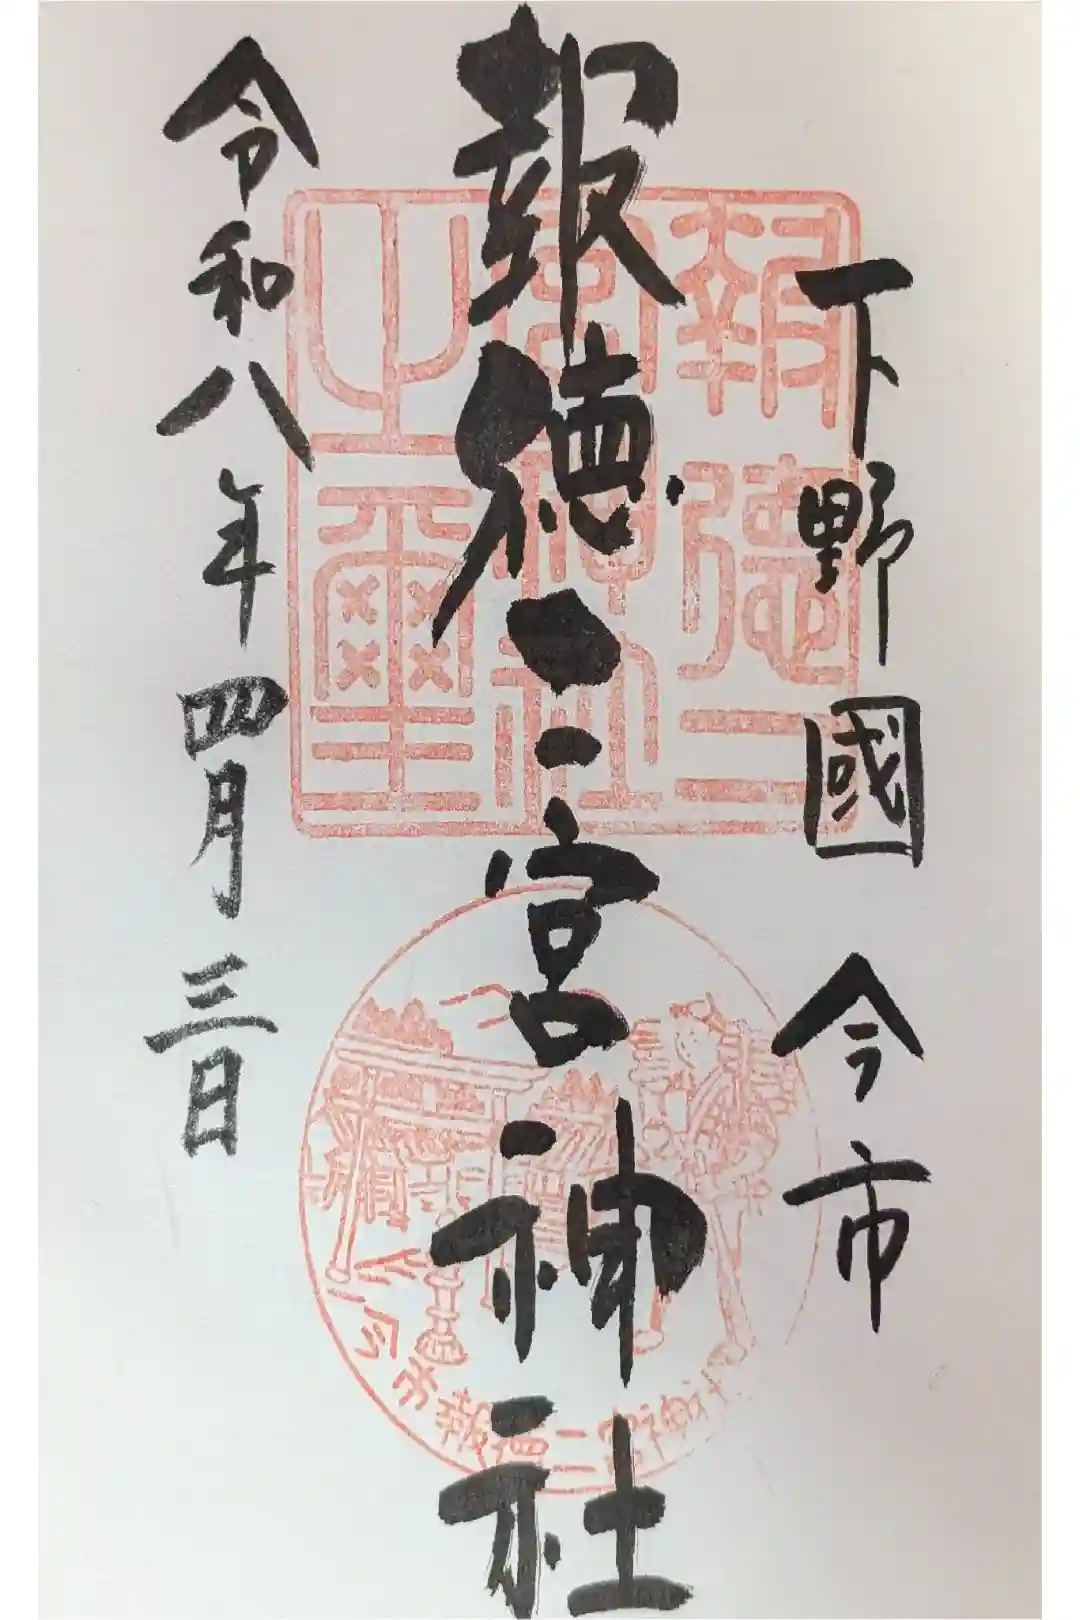 下野國 今市
報徳二宮神社
令和八年四月三日
報徳二
宮神社
之璽
今市報徳二宮神社